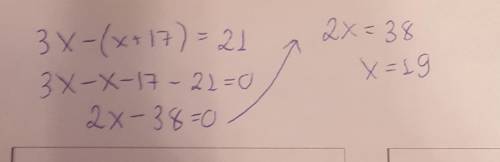 3x-(x+17)=21
3x-x-17-21=0
2x-38=0
2x=38
x=19